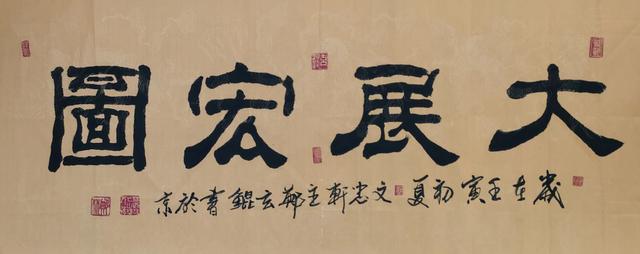 大展宏圖
歲在壬寅初夏文忠軒主鄭玄錕書於京